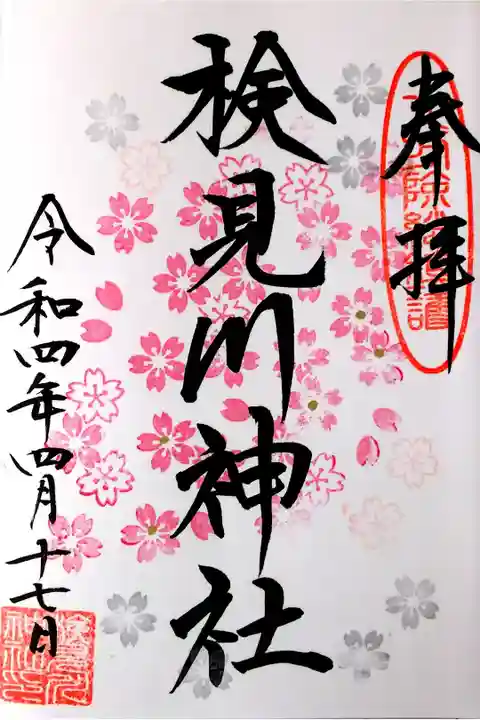 奉拝
検見川神社
令和四年四月十七日